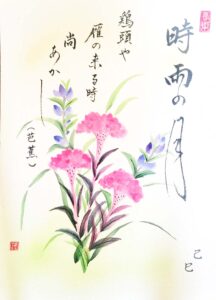 時雨の月
己巳
鶏頭や
雁の来る時
尚
あかし
(芭蕉)